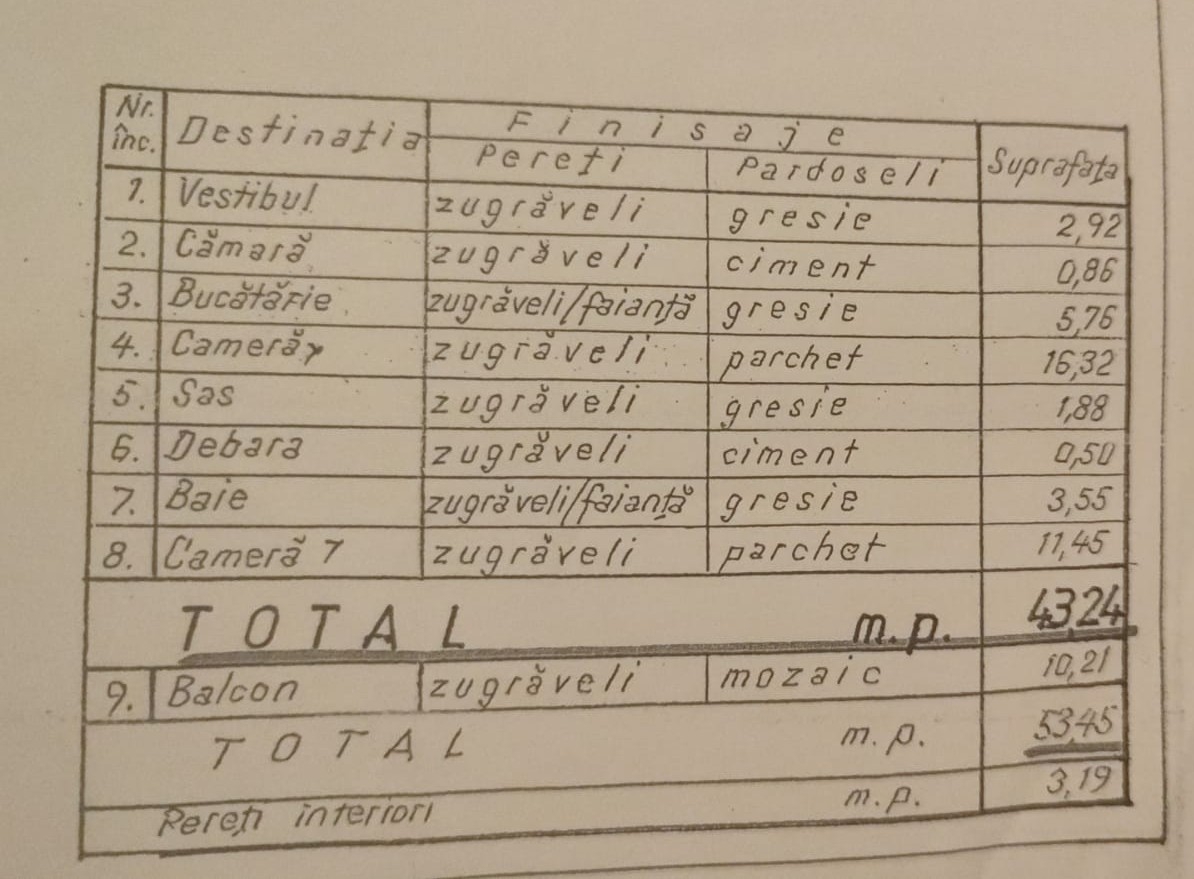 Nr. înc. Destinația Finisaje Suprafața
Pereți Pardoseli
1. Vestibul zugrăveli gresie 2,92
2. Cămară zugrăveli ciment 0,86
3. Bucătărie zugrăveli/faianță gresie 5,76
4. Cameră zugrăveli parchet 16,32
5. Sas zugrăveli gresie 1,88
6. Debara zugrăveli ciment 0,50
7. Baie zugrăveli/faianță gresie 3,55
8. Cameră 7 zugrăveli parchet 11,45
TOTAL m.p. 43,24
9. Balcon zugrăveli mozaic 10,21
TOTAL m.p. 53,45
Pereți interiori m.p. 3,19